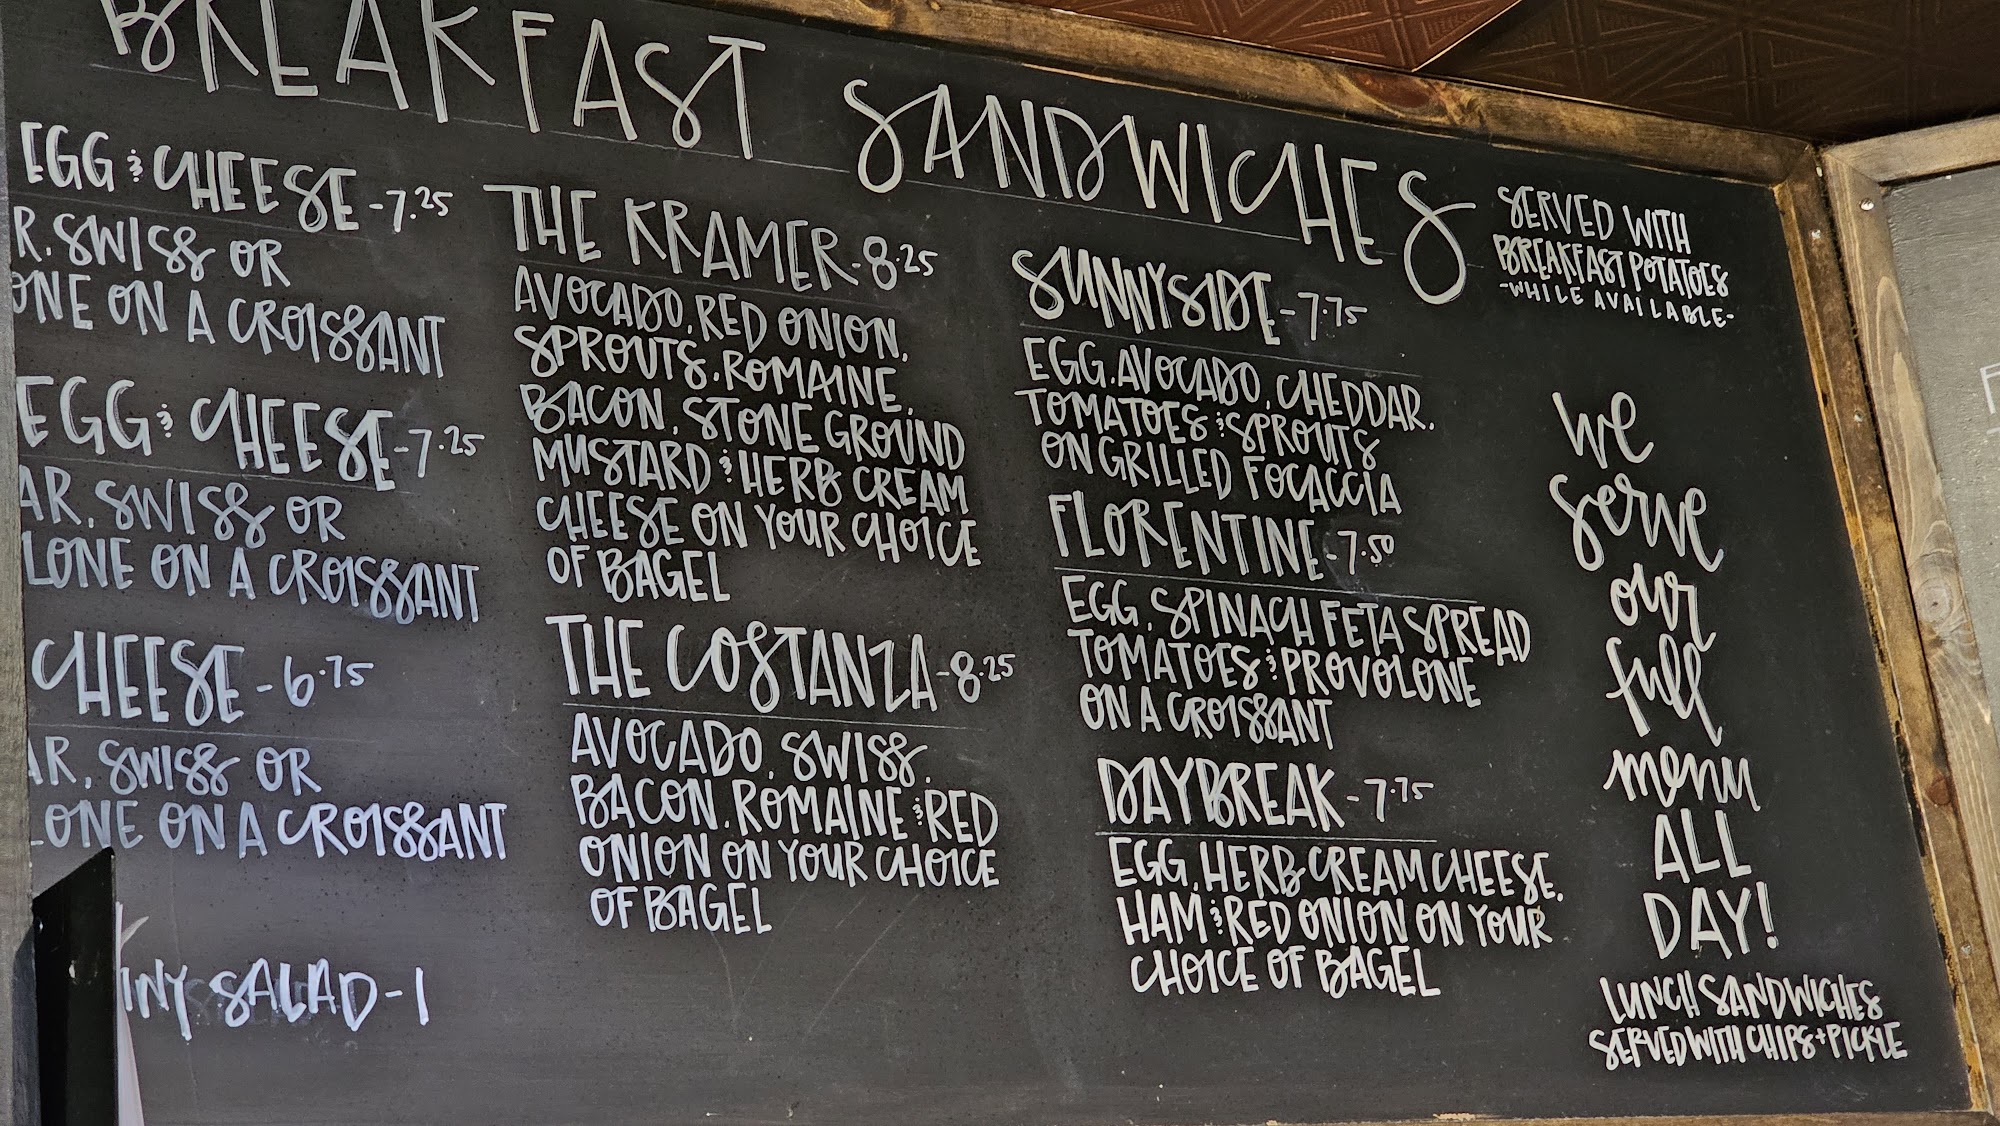 BREAKFAST SANDWICHES
EGG & CHEESE - 7.25
R, SWISS OR
ONE ON A CROISSANT
EGG & CHEESE - 7.25
AR, SWISS OR
LONE ON A CROISSANT
CHEESE - 6.75
AR, SWISS OR
LONE ON A CROISSANT
INY SALAD - 1
THE KRAMER - 8.25
AVOCADO, RED ONION,
SPROUTS, ROMAINE,
BACON, STONE GROUND
MUSTARD & HERB CREAM
CHEESE ON YOUR CHOICE
OF BAGEL
THE COSTANZA - 8.25
AVOCADO, SWISS,
BACON, ROMAINE & RED
ONION ON YOUR CHOICE
OF BAGEL
SUNNYSIDE - 7.75
EGG, AVOCADO, CHEDDAR,
TOMATOES & SPROUTS
ON GRILLED FOCACCIA
FLORENTINE - 7.50
EGG, SPINACH FETA SPREAD
TOMATOES & PROVOLONE
ON A CROISSANT
DAYBREAK - 7.75
EGG, HERB CREAM CHEESE,
HAM & RED ONION ON YOUR
CHOICE OF BAGEL
SERVED WITH
BREAKFAST POTATOES
-WHILE AVAILABLE-
we
serve
our
full
menu
ALL
DAY!
LUNCH SANDWICHES
SERVED WITH CHIPS + PICKLE